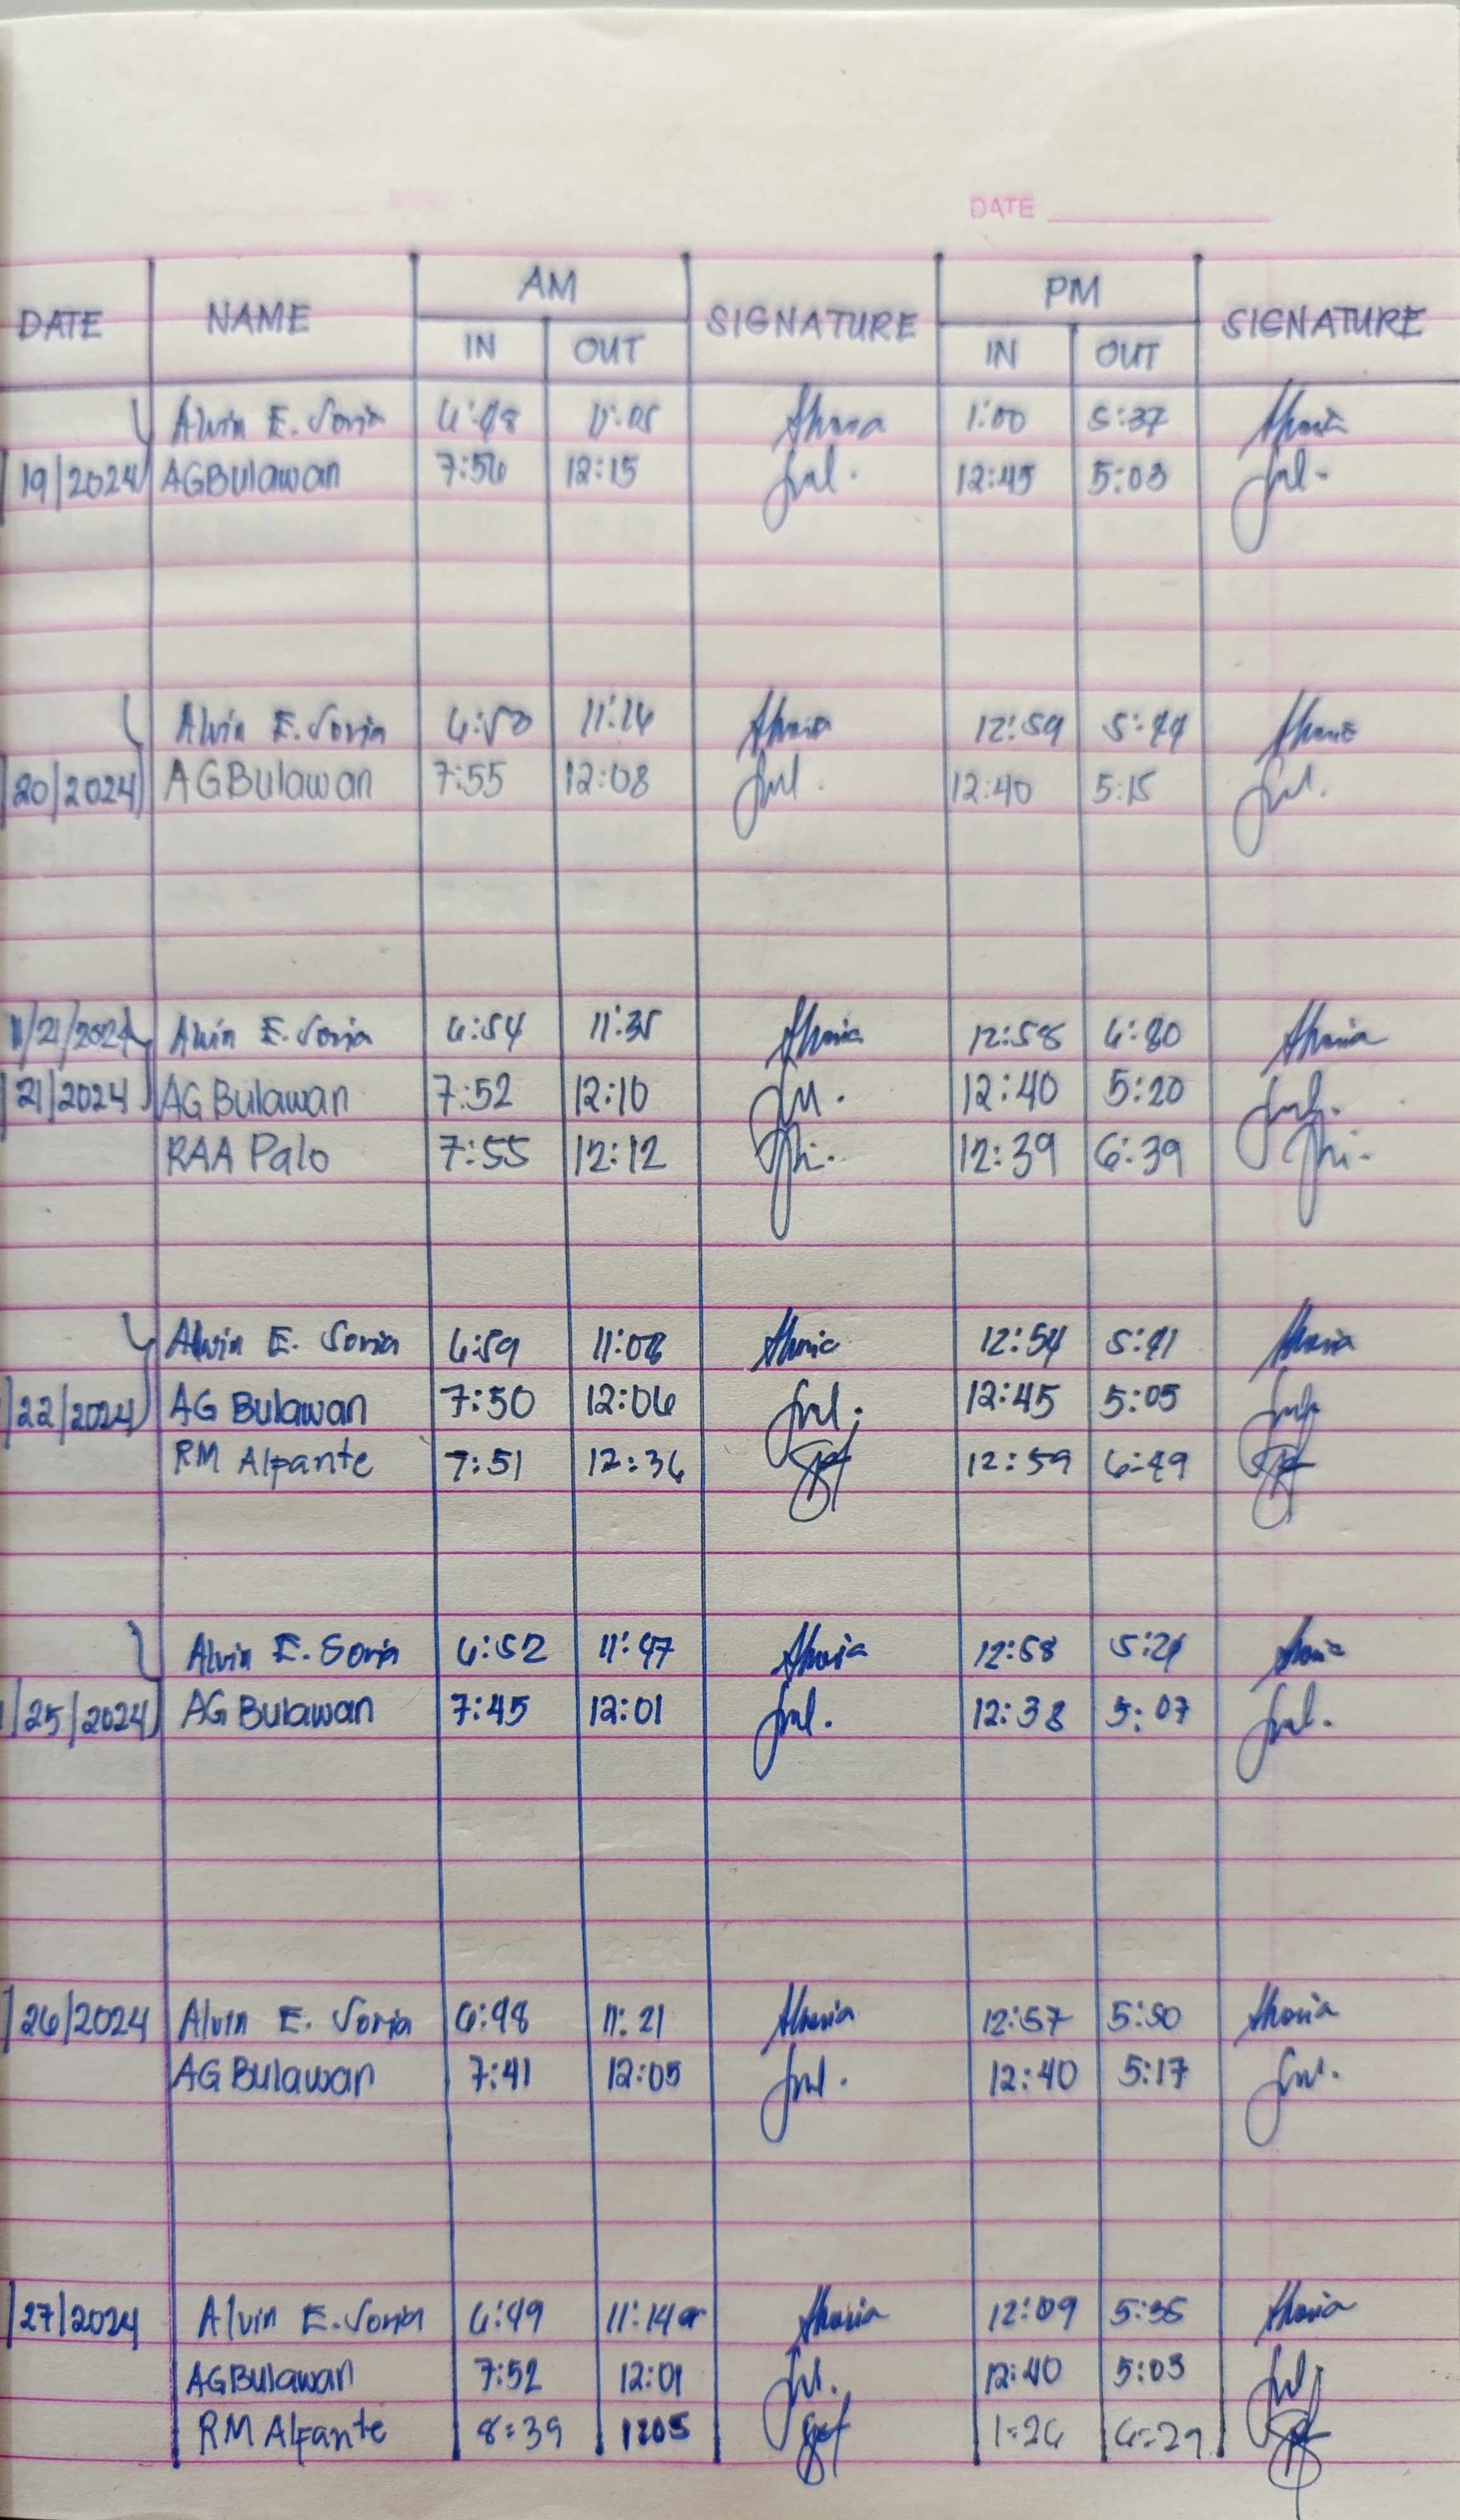 DATE
AM PM
DATE NAME SIGNATURE SIGNATURE
IN OUT IN OUT
Alvin E. Soria 6:48 1:00 5:37
19/2024 AGBulawan 7:56 12:15 12:45 5:03
Alvin E. Soria 6:50 11:26 12:59 5:44
20/2024 AGBulawan 7:55 12:08 12:40 5:15
11/21/2024 Alvin E. Soria 6:54 11:35 12:58 6:30
21/2024 AG Bulawan 7:52 12:10 12:40 5:20
RAA Palo 7:55 12:12 12:39 6:39
Alvin E. Soria 6:59 11:08 12:54 5:41
/22/2024 AG Bulawan 7:50 12:06 12:45 5:05
RM Alfante 7:51 12:36 12:59 6:49
Alvin E. Soria 6:52 11:47 12:58 5:21
/25/2024 AG Bulawan 7:45 12:01 12:38 5:07
/26/2024 Alvin E. Soria 6:48 11:21 12:57 5:50
AG Bulawan 7:41 12:05 12:40 5:17
/27/2024 Alvin E. Soria 6:49 11:14 12:09 5:35
AGBulawan 7:52 12:01 12:40 5:03
RM Alfante 8:39 1:05 1:26 6:29